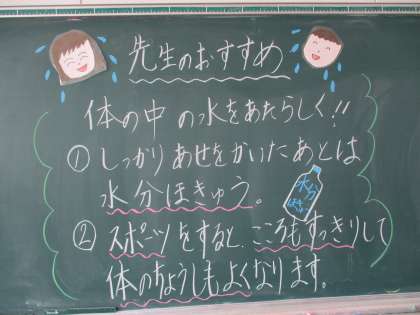 先生のおすすめ
体の中の水をあたらしく!!
① しっかりあせをかいたあとは
水分ほきゅう。
水分
② スポーツをすると、こころもすっきりして
体のちょうしもよくなります。